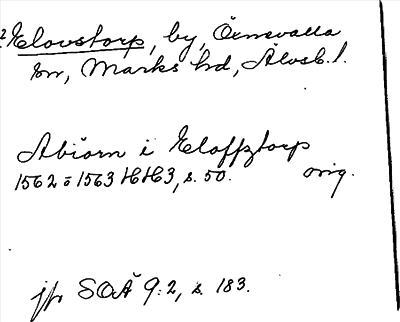 Elovstorp, by, Örnevalla
sn, Marks hd, Älvsb. l.
Abiörn i Eloffztorp
1562 o 1563 HH3, s. 50. orig.
jfr SOÄ 9:2, s. 183.